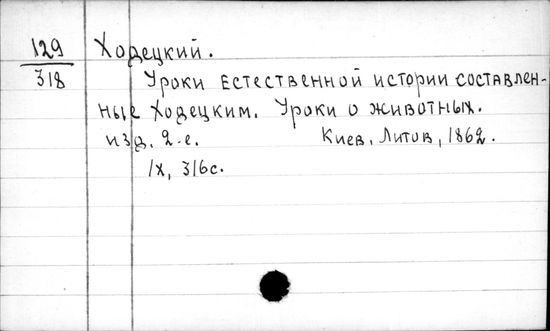 129 Ходецкий.
318 Уроки естественной истории составлен-
ные Ходецким. Уроки о животных.
изд. 2-е. Киев, Литов, 1862.
IX, 316 с.